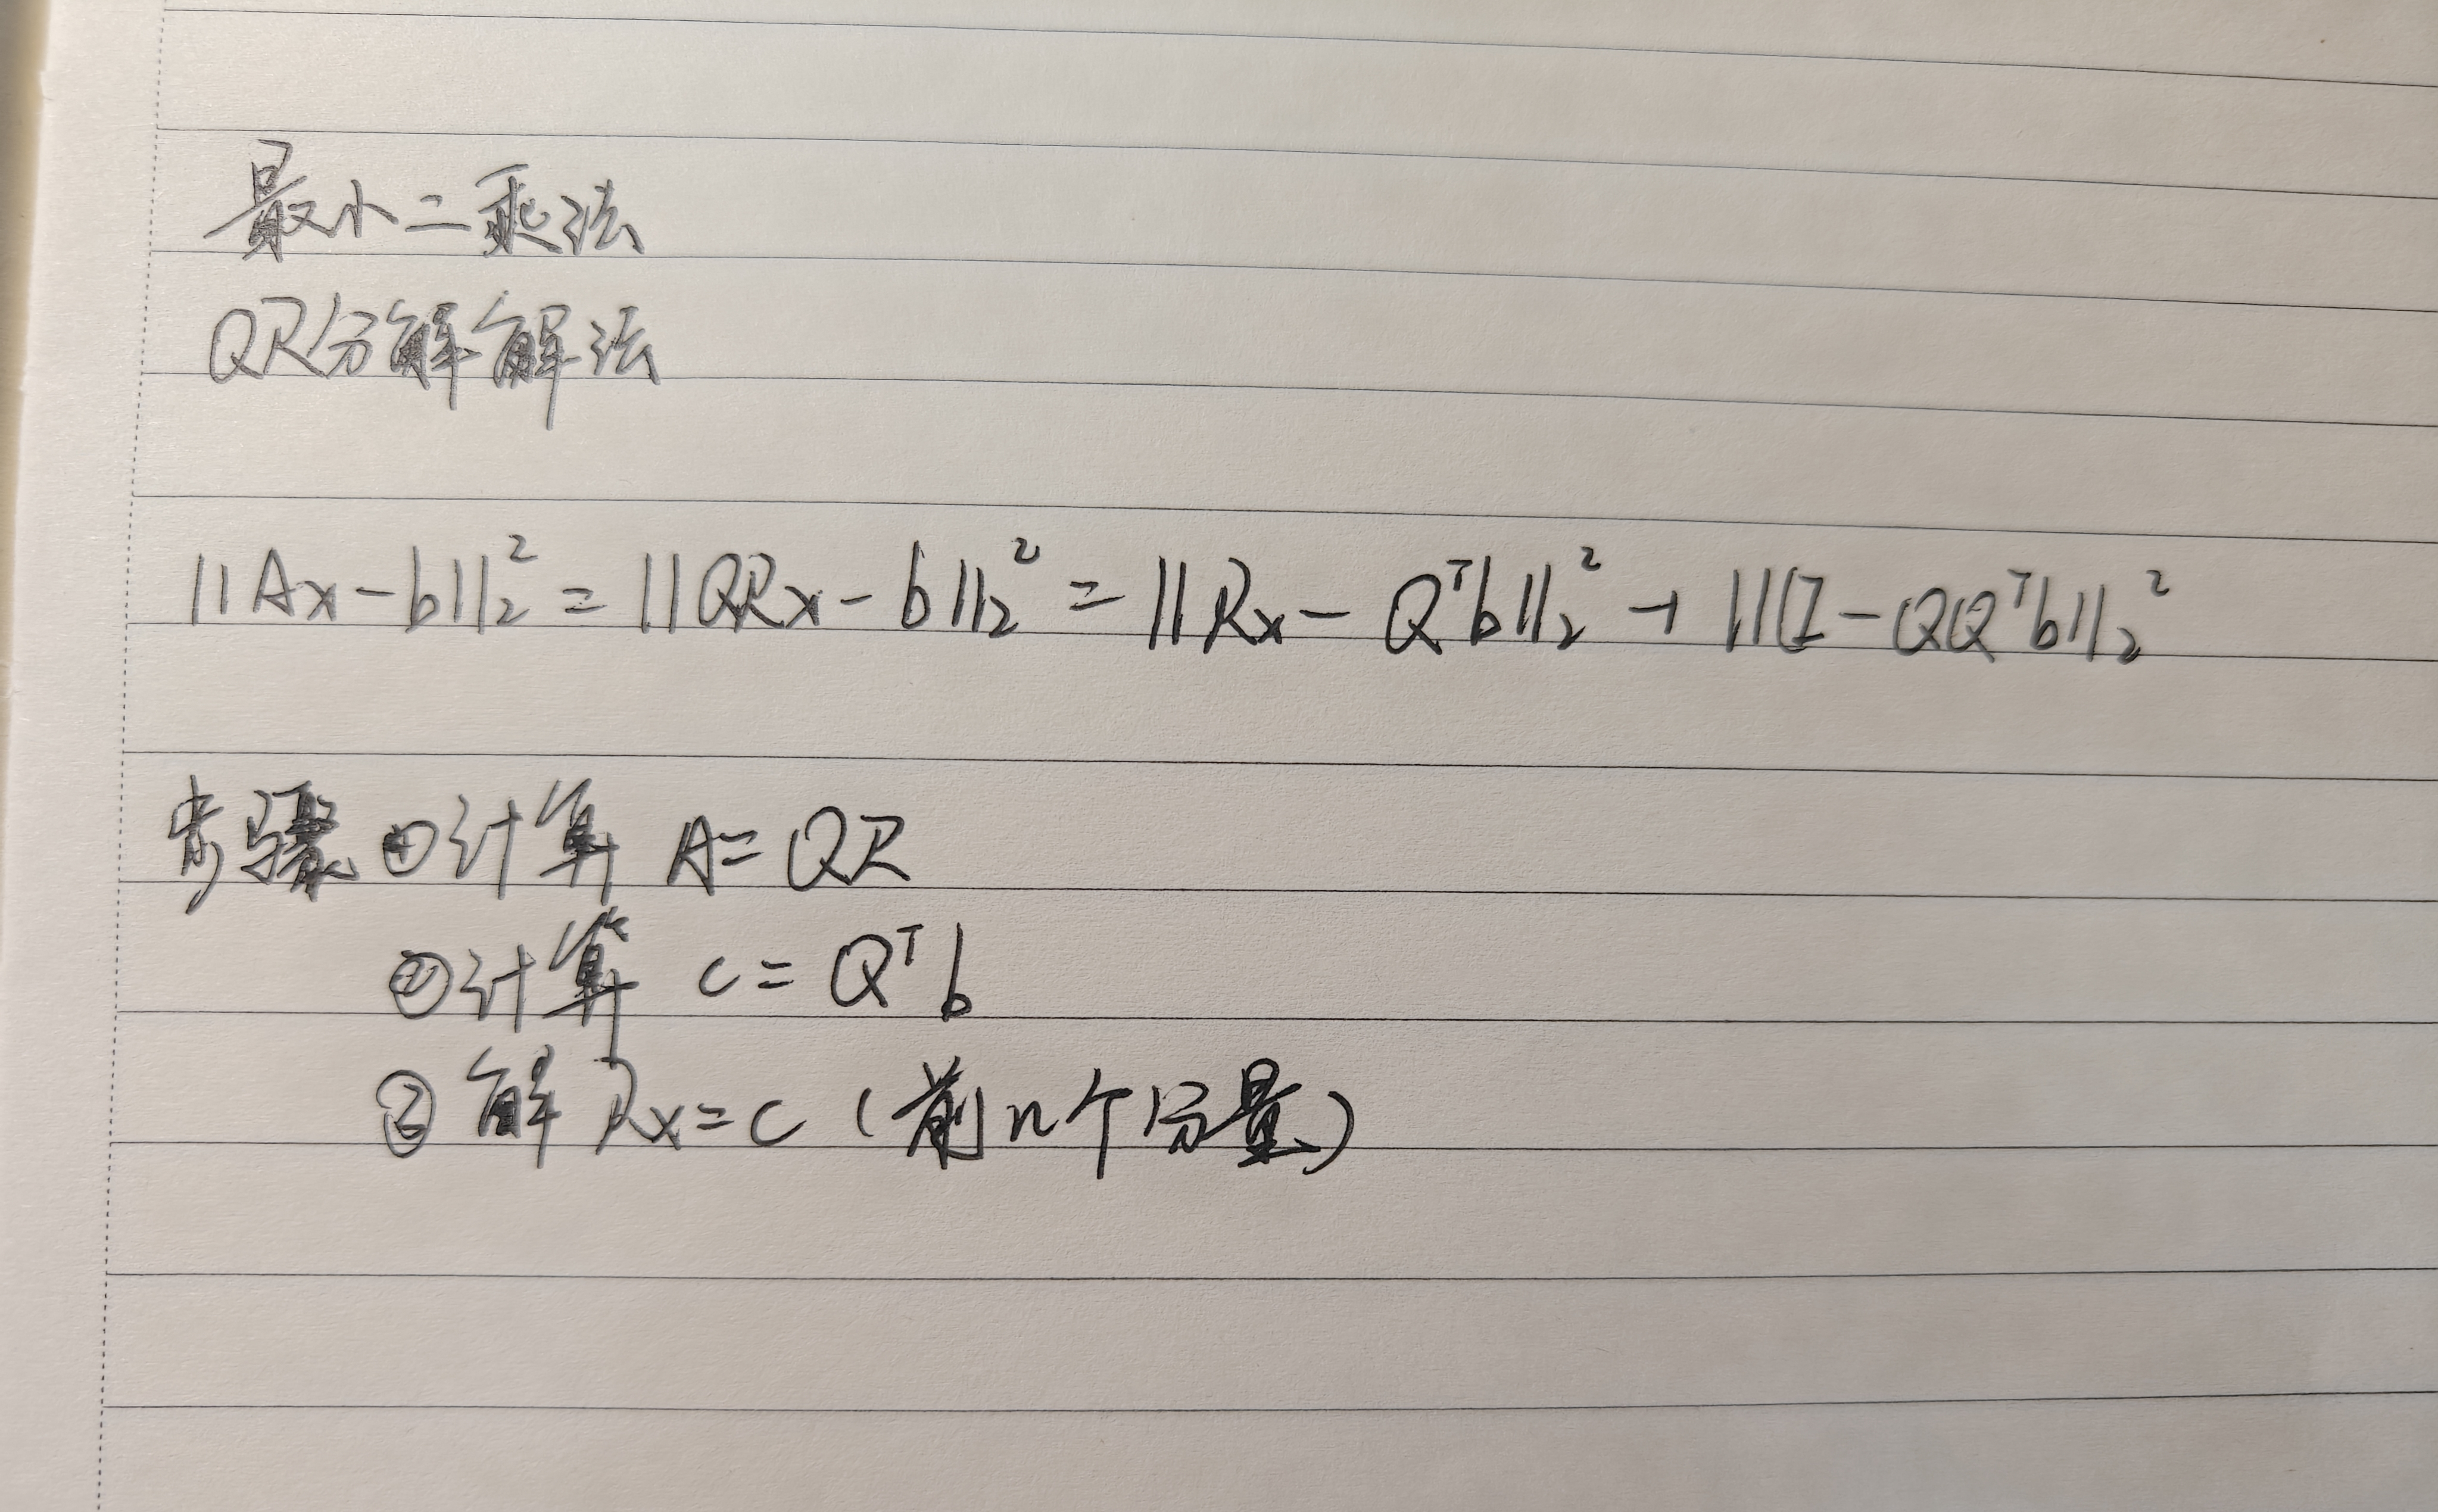 最小二乘法
QR分解解法
||Ax-b||₂² = ||QRx-b||₂² = ||Rx-Qᵀb||₂² + ||(I-QQᵀb||₂²
步骤 ①计算 A=QR
②计算 c=Qᵀb
③解 Rx=c (前n个分量)